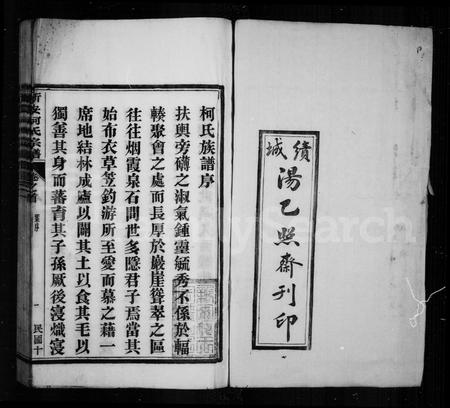 績城
湯乙照齋刊印
柯氏族譜序
扶輿旁礴之淑氣鍾靈毓秀不係於輻
輳聚會之處而長厚於巖崖聳翠之區
往往烟霞泉石間世多隱君子焉當其
始布衣草笠釣游所至愛而慕之藉一
席地結林成廬以闢其土以食其毛以
獨善其身而蕃育其子孫厥後寖熾寖
新安柯氏宗譜
卷之首
一
民國十